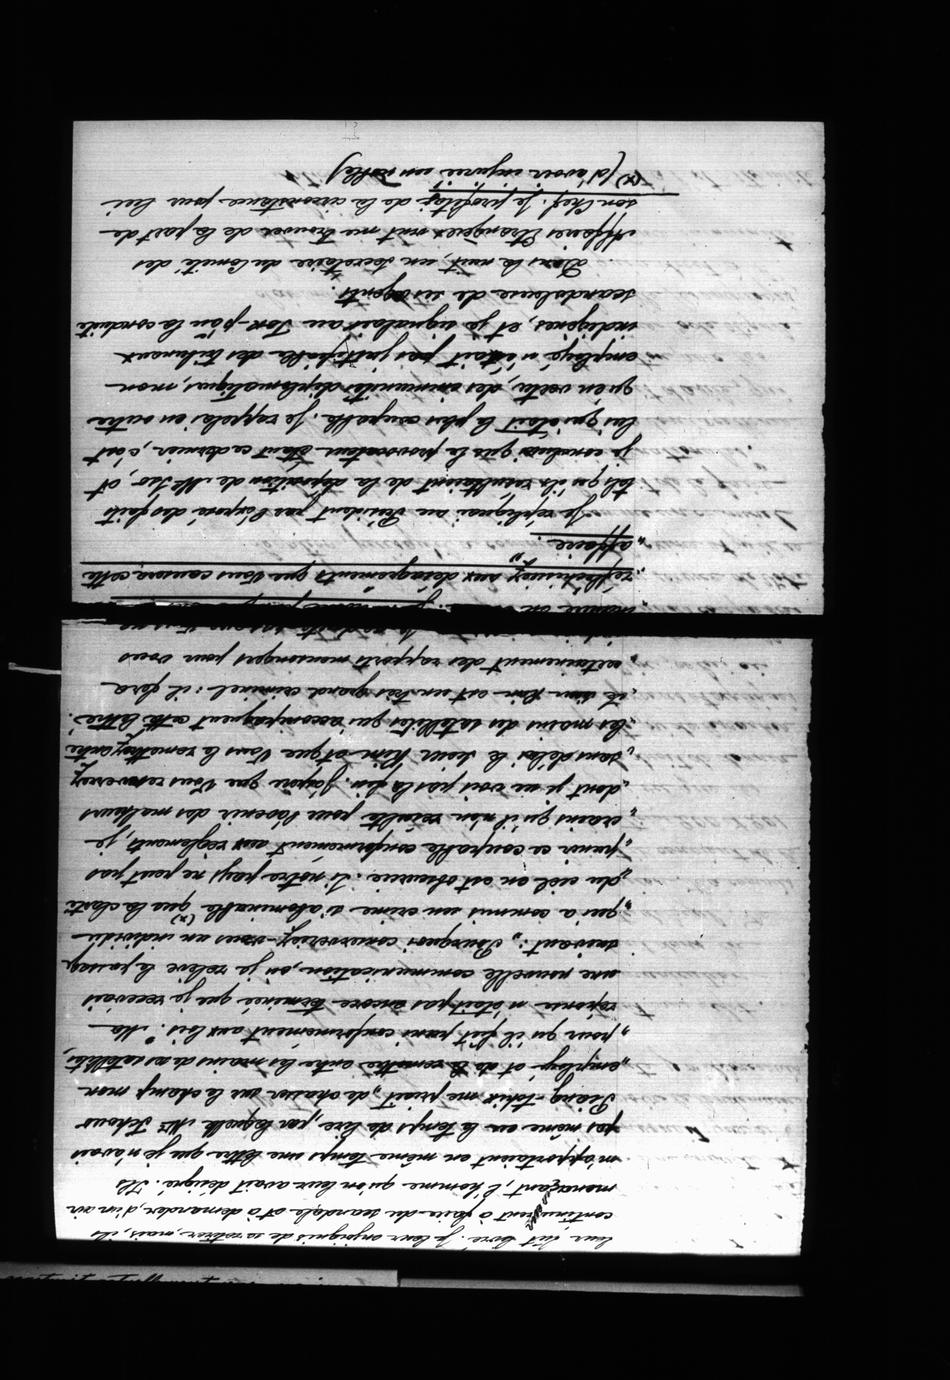 leur fût livré. Je leur enjoignis de se retirer, mais, ils
continuèrent à faire du scandale et à demander, d'un air
menaçant, l'homme qu'on leur avait désigné. Ils
m'apportaient en même temps une lettre que je n'avais
pas même eu le temps de lire, par laquelle Mr Tchou
Siang-tchix me priait „de chasser sur le champ mon
„employé et de le remettre entre les mains de ses satellites,
„pour qu'il fût puni conformément aux lois. Ma
réponse n'était pas encore terminée que je recevais
une nouvelle communication, où je relève le passage
suivant: „Pourquoi conserverez-vous un individu
„qui a commis un crime si abominable (x) que la clarté
„du ciel en est obscurcie. Si notre pays ne peut pas
„punir ce coupable conformément aux règlements, je
„crains qu'il n'en résulte pour l'avenir des malheurs
„dont je ne vois pas la fin. J'espère que Vous renverrez
„sans délai le sieur Kim et que Vous le remettrez entre
„les mains des satellites qui accompagnent cette lettre.
„Ce Kim est un très grand criminel: il fera
„certainement des rapports mensongers pour vous
„réfléchissiez aux désagréments que Vous causera cette
„affaire.
Je répliquai au Président par l'exposé des faits
tels qu'ils résultaient de la déposition de Mr Leo, et
je conclus que le provocateur étant ce dernier, c'est
lui qui était le plus coupable. Je rappelai en outre
qu'en vertu des immunités diplomatiques, mon
employé n'était pas justiciable des tribunaux
indigènes, et je signalais au Tok-pan la conduite
scandaleuse de ses agents.
Dans la nuit, un Secrétaire du Comité des
Affaires Etrangères vint me trouver de la part de
son Chef. Je profitai de la circonstance pour lui
(x) (d'avoir injurié un noble)